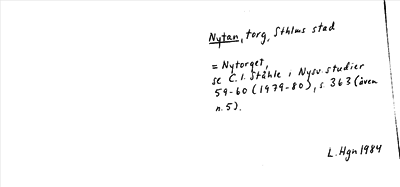 Nytan, torg, Sthlms stad
= Nytorget,
se C.I. Ståhle i Nysv. studier
59-60 (1979-80), s. 363 (även
n. 5).
L. Hgn 1984